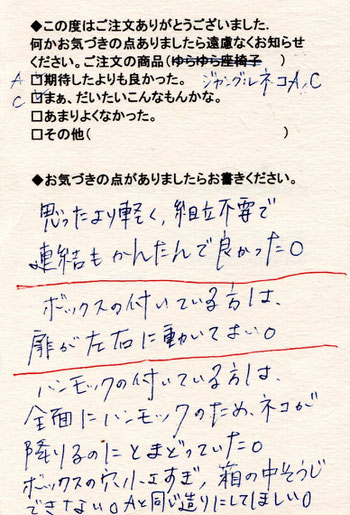 ◆この度はご注文ありがとうございました.
何かお気づきの点ありましたら遠慮なくお知らせ
ください。ご注文の商品(ゆらゆら座椅子 )
A □期待したよりも良かった。 ジャングルネコA,C
C ☑まぁ、だいたいこんなもんかな。
□あまりよくなかった。
□その他( )
◆お気づきの点がありましたらお書きください。
思ったより軽く,組立不要で
連結もかんたんで良かった。
ボックスの付いている方は、
扉が左右に動いてよい。
ハンモックの付いている方は、
全面にハンモックのため、ネコが
降りるのにとまどっていた。
ボックスの穴小さすぎ,箱の中そうじ
できない。Aと同じ造りにしてほしい。